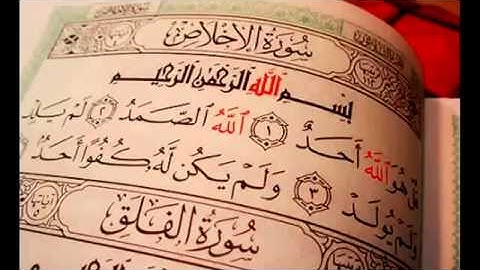 سُورَةُ الإِخْلَاصِ
بِسْمِ اللَّهِ الرَّحْمَٰنِ الرَّحِيمِ
هُوَ اللَّهُ أَحَدٌ ١ اللَّهُ الصَّمَدُ ٢ لَمْ يَلِدْ
وَلَمْ يُولَدْ ٣ وَلَمْ يَكُن لَّهُ كُفُوًا أَحَدٌ
سُورَةُ الْفَلَقِ